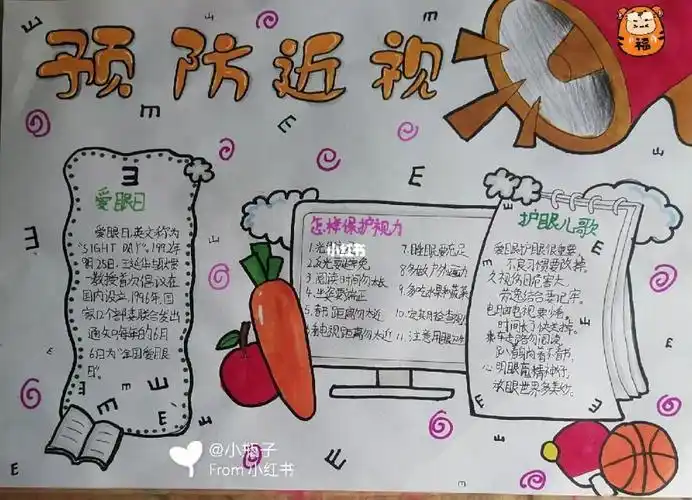 预防近视
福
爱眼日
爱眼日,英文称为
"SIGHT DAY"。1992年
9月25日,王延华
教授首次倡议在
国内设立,1996年国
家12个部委联合发出
通知,每年的6月
6日为"全国爱眼
日"。
怎样保护视力
小红书
3.阅读时间勿太长
4.坐姿要端正
5.看书距离勿太近
6.看电视距离勿太近
7.睡眠要充足
8.多做户外运动
9.多吃水果和蔬菜
10.定期检查视力
11.注意用眼卫生
护眼儿歌
爱眼护眼很重要
不良习惯要改掉。
久视伤目危害大,
劳逸结合要记牢。
电脑电视要少看,
时间长了快去掉。
乘车走路勿阅读,
趴着躺着不看书。
心明眼亮精神好,
E
@小瓶子
From 小红书